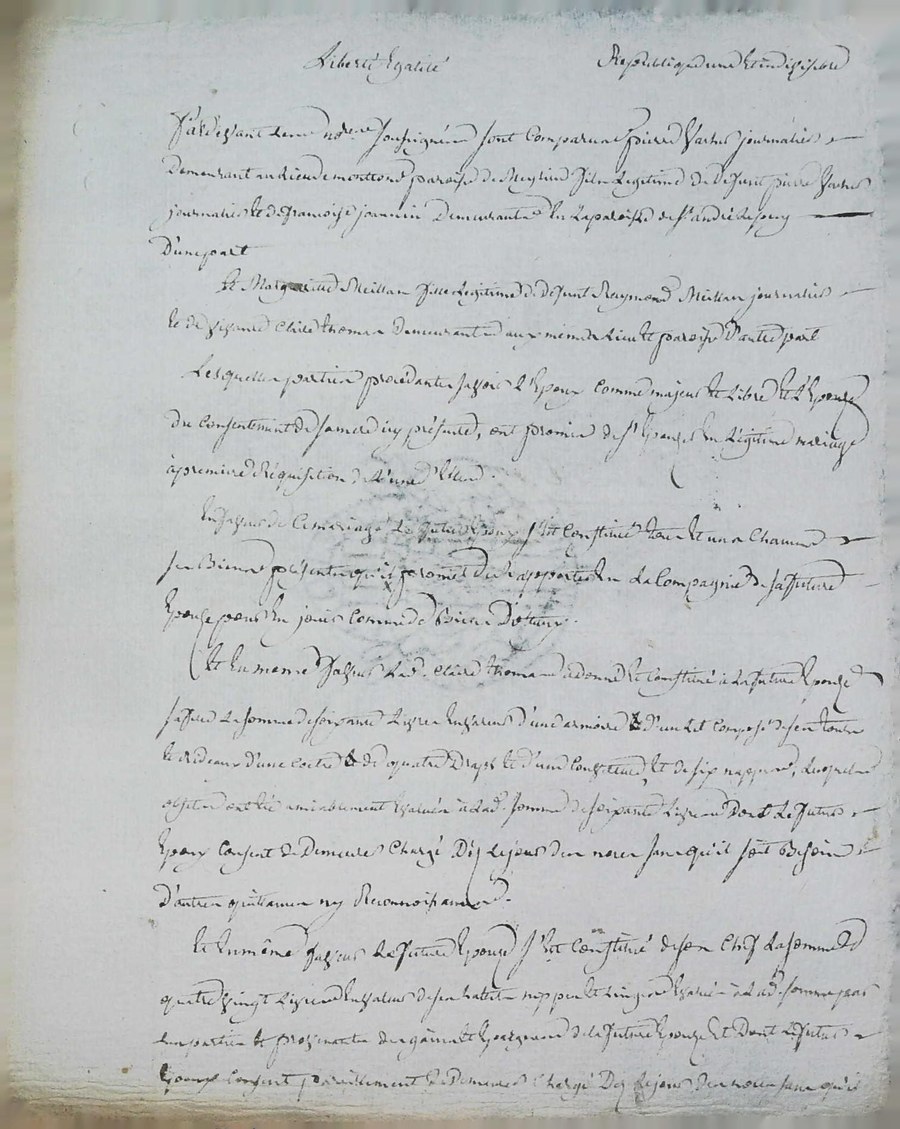 Liberté Egalité Republique une et indivisible
Pardevant le nore soussigné sont comparus pierre journalier
Demeurant au lieu de paroisse de fils legitime de defunt pierre
journalier et de françoise jeannin Demeurante en la paroisse de St andré
D'une part
Et Marguerite Meillan fille legitime de defunt Raymond Meillan journalier
et de vivante Claire thomas Demeurante aux mêmes lieu et paroisse D'autre part
Lesquelles parties procédantes savoir l'Epoux comme majeur et libre et l'Epouze
du consentement de sa mere icy présente, ont promis de s'Epouzer en légitime mariage
à premiere Réquisition de l'une d'Elles.
En faveur de ce mariage le futur Epoux s'est constitué tous et uns chacuns
ses Biens présents qu'il promet de rapporter en la Compagnie de sa future
Epouze pour en jouir comme de Biens
Et en meme faveur lad. Claire thomas a donné et constitué à la future Epouze
sa fille la somme de soixante Livres en valeur d'une armoire et d'un lit composé de son tour
et rideaux d'une coete et de quatre Draps et d'une couverte, et de six nappes, lesquels
objets ont été amiablement évalués à lad. somme de soixante Livres Dont le futur
Epoux consent de Demeurer Chargé Dez le jour des noces sans qu'il soit Besoin
D'autres quittances ny Reconnoissances.
Et en même faveur la future Epouze s'est constitué de son Chef la somme de
quatre vingt Livres en valeur de ses habits nippes et linges évalués à lad. somme par
les parties et provenantes des gains et Epargnes de la future Epouze et Dont le futur
Epoux consent pareillement de Demeurer Chargé Dez le jour des noces sans qu'il